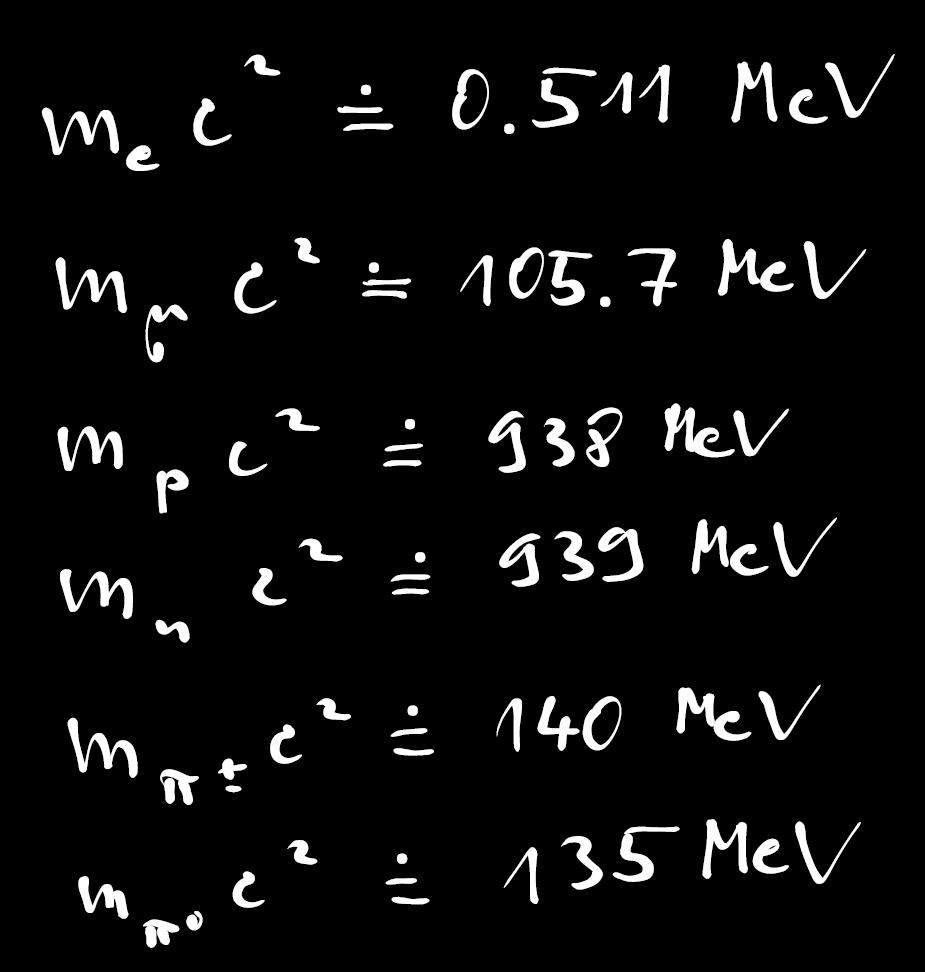 mₑ c² ≐ 0.511 MeV
m_μ c² ≐ 105.7 MeV
mₚ c² ≐ 938 MeV
mₙ c² ≐ 939 MeV
m_π± c² ≐ 140 MeV
m_π⁰ c² ≐ 135 MeV